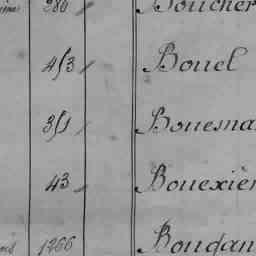 280 Boucher
453 Bouel
351 Bouesna
43 Bouexièr
1266 Boudan